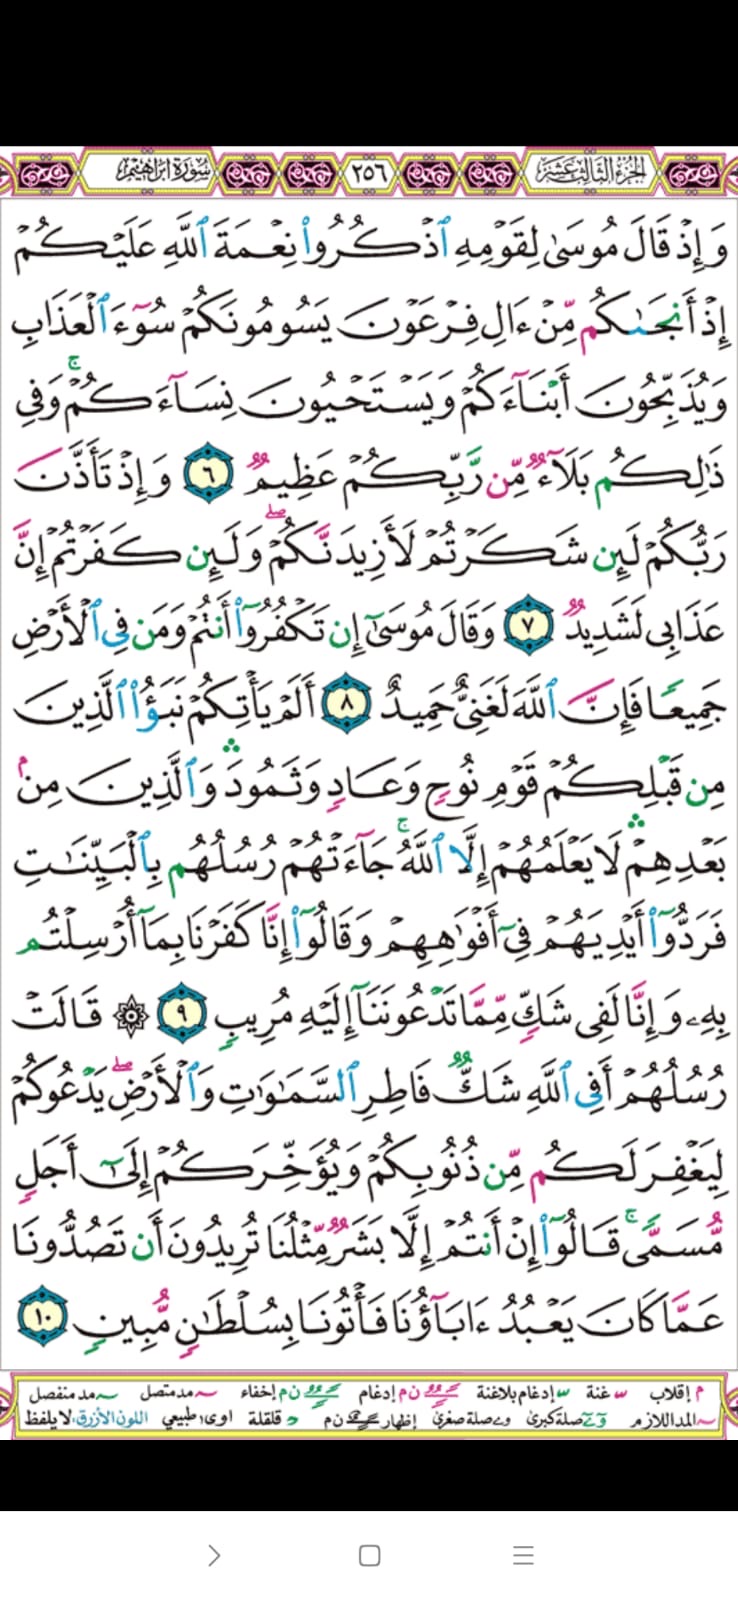 الجزء الثالث عشر ٢٥٦ سورة ابراهيم
وَإِذْ قَالَ مُوسَىٰ لِقَوْمِهِ ٱذْكُرُوا۟ نِعْمَةَ ٱللَّهِ عَلَيْكُمْ
إِذْ أَنجَىٰكُم مِّنْ ءَالِ فِرْعَوْنَ يَسُومُونَكُمْ سُوٓءَ ٱلْعَذَابِ
وَيُذَبِّحُونَ أَبْنَآءَكُمْ وَيَسْتَحْيُونَ نِسَآءَكُمْ ۚ وَفِى
ذَٰلِكُم بَلَآءٌ مِّن رَّبِّكُمْ عَظِيمٌ ٦ وَإِذْ تَأَذَّنَ
رَبُّكُمْ لَئِن شَكَرْتُمْ لَأَزِيدَنَّكُمْ ۖ وَلَئِن كَفَرْتُمْ إِنَّ
عَذَابِى لَشَدِيدٌ ٧ وَقَالَ مُوسَىٰٓ إِن تَكْفُرُوٓا۟ أَنتُمْ وَمَن فِى ٱلْأَرْضِ
جَمِيعًا فَإِنَّ ٱللَّهَ لَغَنِىٌّ حَمِيدٌ ٨ أَلَمْ يَأْتِكُمْ نَبَؤُا۟ ٱلَّذِينَ
مِن قَبْلِكُمْ قَوْمِ نُوحٍ وَعَادٍ وَثَمُودَ ۛ وَٱلَّذِينَ مِنۢ
بَعْدِهِمْ ۛ لَا يَعْلَمُهُمْ إِلَّا ٱللَّهُ ۚ جَآءَتْهُمْ رُسُلُهُم بِٱلْبَيِّنَٰتِ
فَرَدُّوٓا۟ أَيْدِيَهُمْ فِىٓ أَفْوَٰهِهِمْ وَقَالُوٓا۟ إِنَّا كَفَرْنَا بِمَآ أُرْسِلْتُم
بِهِۦ وَإِنَّا لَفِى شَكٍّ مِّمَّا تَدْعُونَنَآ إِلَيْهِ مُرِيبٍ ٩ ۞ قَالَتْ
رُسُلُهُمْ أَفِى ٱللَّهِ شَكٌّ فَاطِرِ ٱلسَّمَٰوَٰتِ وَٱلْأَرْضِ ۖ يَدْعُوكُمْ
لِيَغْفِرَ لَكُم مِّن ذُنُوبِكُمْ وَيُؤَخِّرَكُمْ إِلَىٰٓ أَجَلٍ
مُّسَمًّى ۚ قَالُوٓا۟ إِنْ أَنتُمْ إِلَّا بَشَرٌ مِّثْلُنَا تُرِيدُونَ أَن تَصُدُّونَا
عَمَّا كَانَ يَعْبُدُ ءَابَآؤُنَا فَأْتُونَا بِسُلْطَٰنٍ مُّبِينٍ ١٠
م إقلاب غنة إدغام بلاغنة ن م إدغام ن م إخفاء مد متصل مد منفصل
المد اللازم صلة كبرى صلة صغرى إظهار ن م قلقلة اوى طبيعي اللون الأزرق: لا يلفظ